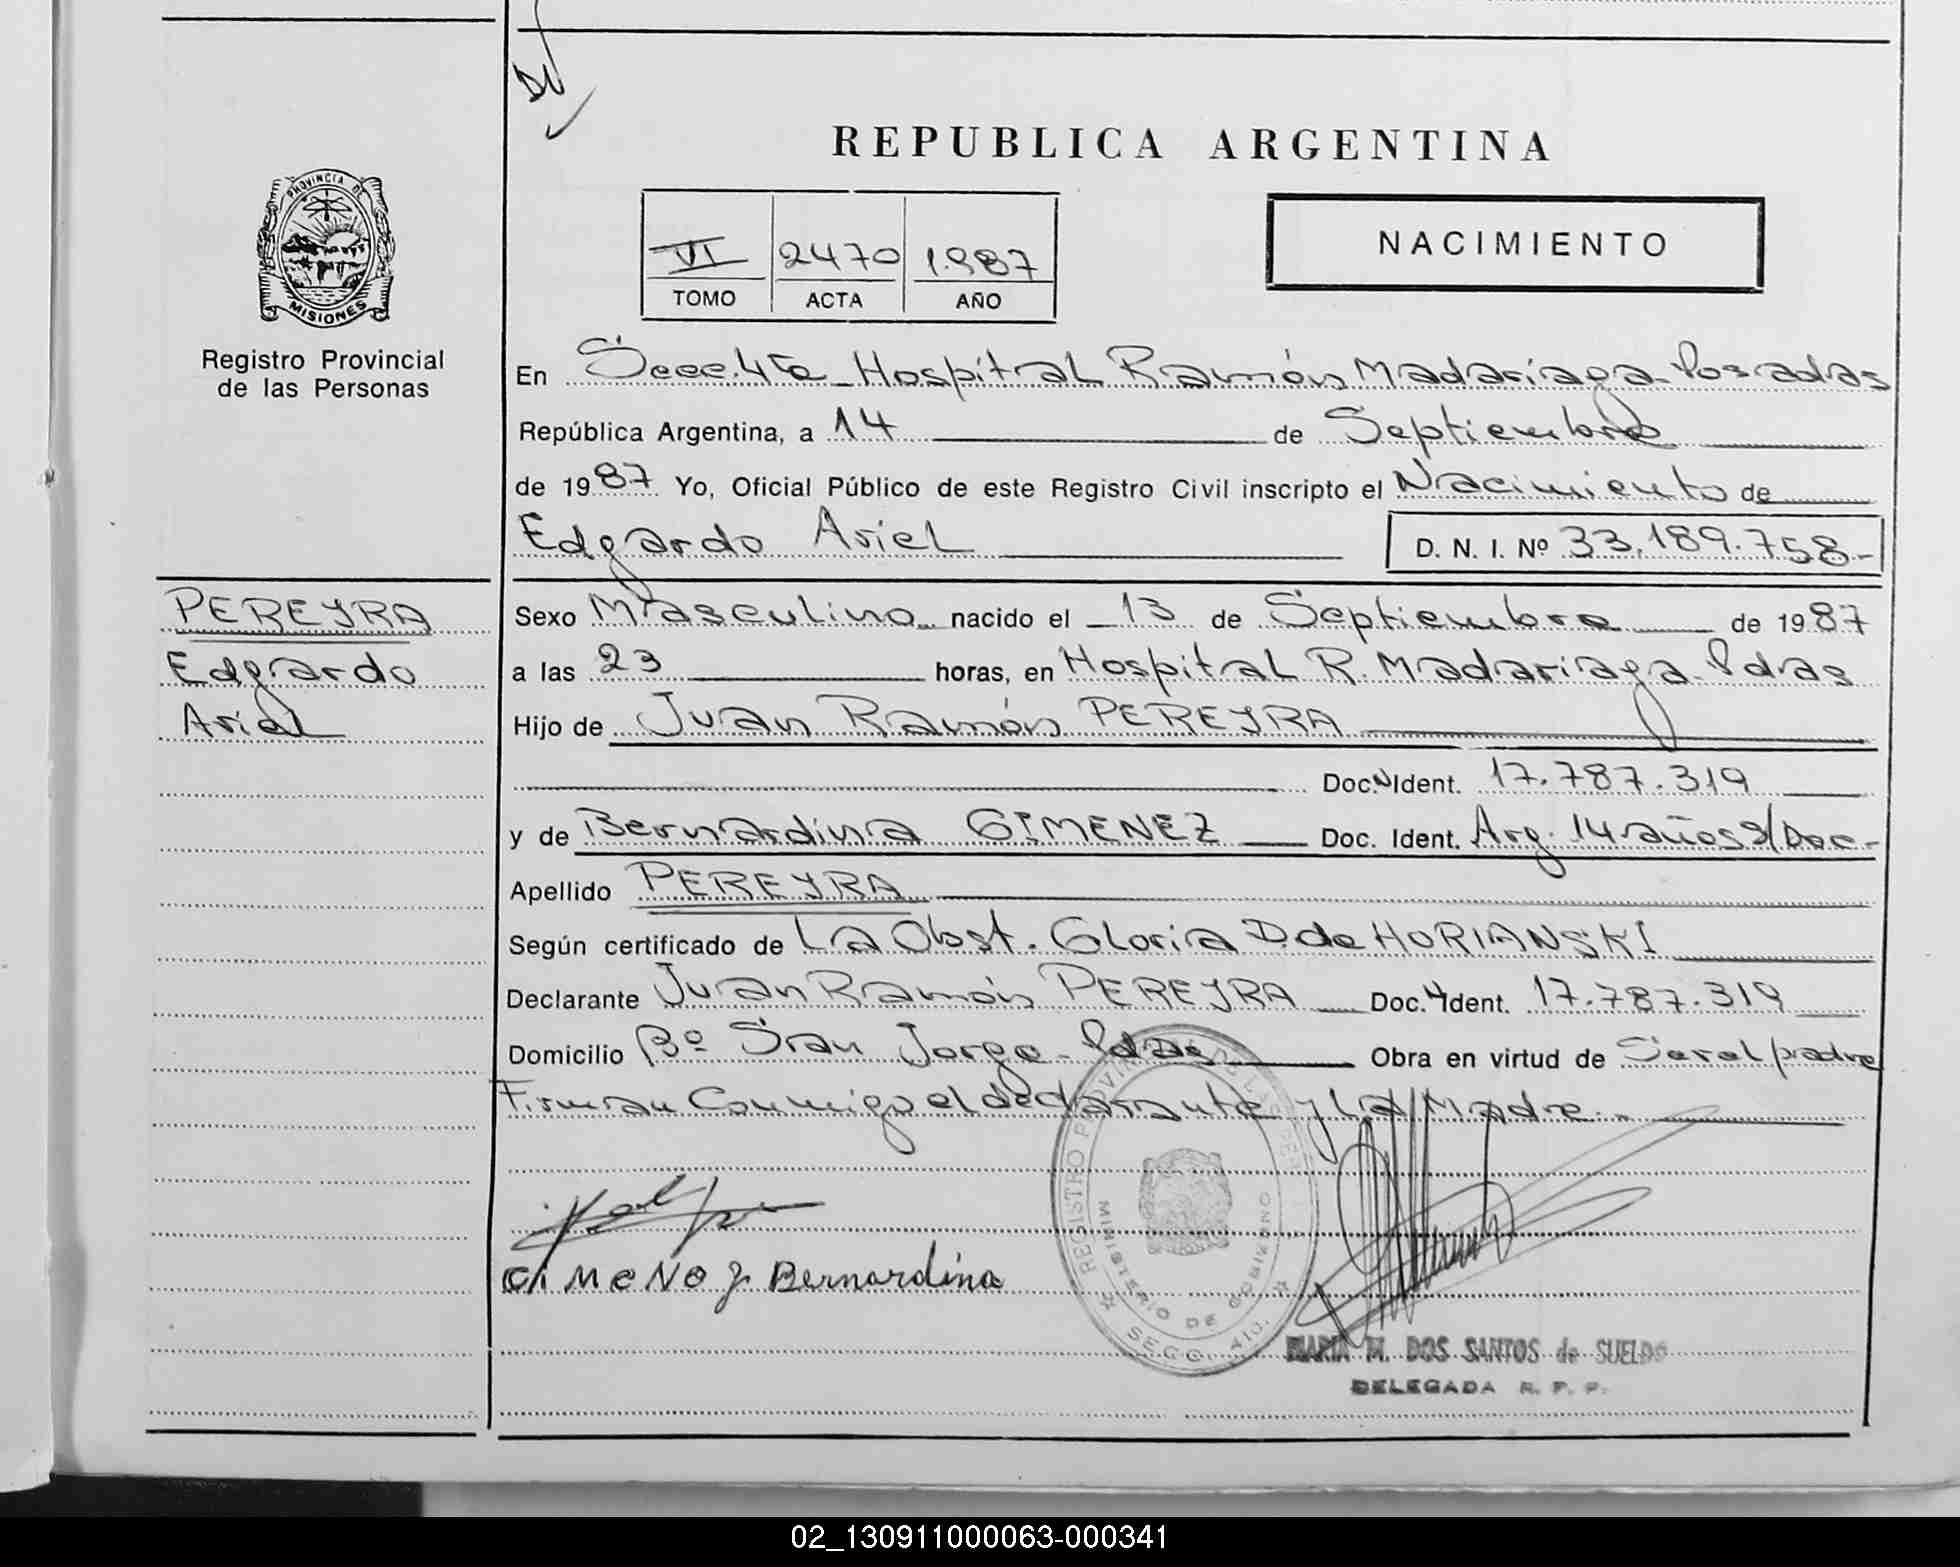 DU
REPUBLICA ARGENTINA
PROVINCIA DE
MISIONES
Registro Provincial
de las Personas
VI 2470 1.987
TOMO ACTA AÑO
NACIMIENTO
En Secc. 4ta Hospital Ramón Madariaga - Posadas
República Argentina, a 14 de Septiembre
de 1987 Yo, Oficial Público de este Registro Civil inscripto el Nacimiento de
Edgardo Ariel D. N. I. Nº 33.189.758.-
PEREYRA
Edgardo
Ariel
Sexo Masculino nacido el 13 de Septiembre de 1987
a las 23 horas, en Hospital R. Madariaga - Pdas
Hijo de Juan Ramón PEREYRA
Doc. N Ident. 17.787.319
y de Bernardina GIMENEZ Doc. Ident. Arg. 14 años S/Doc.-
Apellido PEREYRA
Según certificado de La Obst. Gloria D. de HORIANSKI
Declarante Juan Ramón PEREYRA Doc. Ident. 17.787.319
Domicilio Bº San Jorge - Pdas Obra en virtud de Ser el padre
Firman Conmigo el declarante y La Madre.-
REGISTRO PROVINCIAL DE LAS
MINISTERIO DE GOBIERNO
Bernardina
MARIA M. DOS SANTOS de SUELDO
DELEGADA R. P. P.
02_130911000063-000341